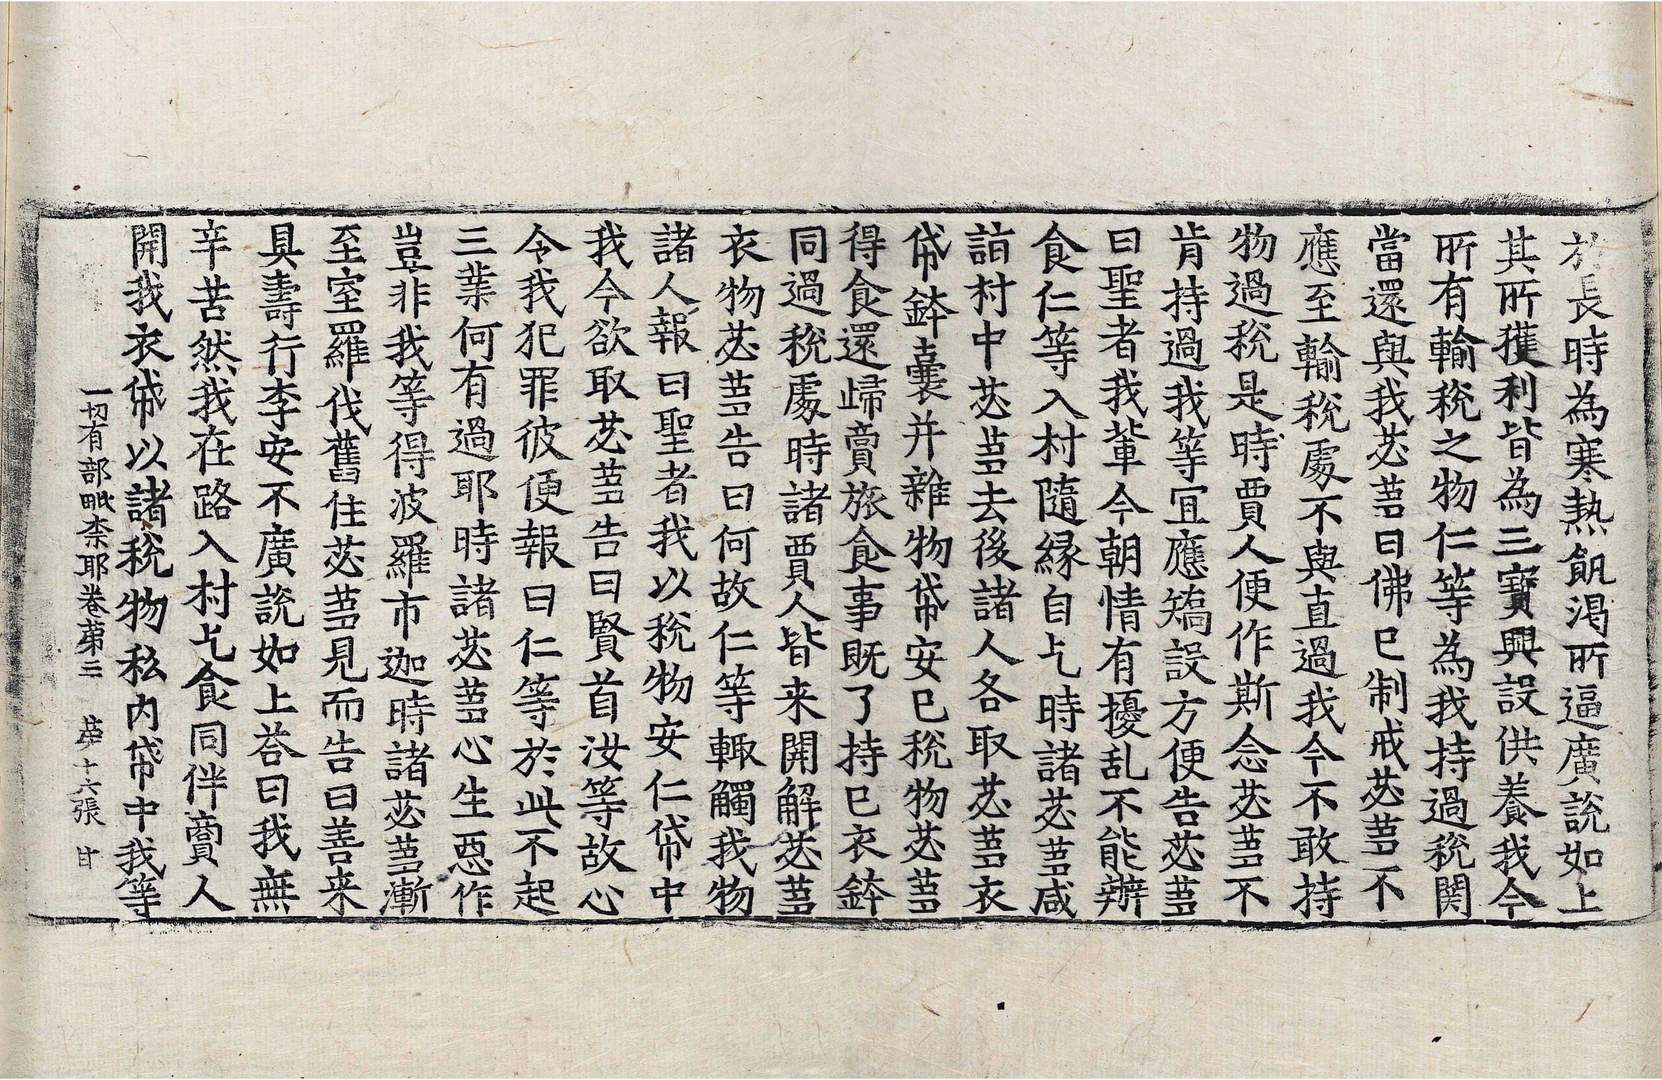 於長時為寒熱飢渴所逼廣說如上
其所獲利皆為三寶興設供養我今
所有輸稅之物仁等為我持過稅關
當還與我苾蒭曰佛已制戒苾蒭不
應至輸稅處不與直過我今不敢持
物過稅是時賈人便作斯念苾蒭不
肯持過我等宜應矯設方便告苾蒭
曰聖者我輩今朝情有擾乱不能辦
食仁等入村隨緣自乞時諸苾蒭咸
詣村中苾蒭去後諸人各取苾蒭衣
帒鉢囊并雜物帒安已稅物苾蒭
得食還歸賣旅食事既了持已衣鉢
同過稅處時諸賈人皆来開解苾蒭
衣物苾蒭告曰何故仁等輙觸我物
諸人報曰聖者我以稅物安仁帒中
我今欲取苾蒭告曰賢首汝等故心
令我犯罪彼便報曰仁等於此不起
三業何有過耶時諸苾蒭心生惡作
豈非我等得波羅市迦時諸苾蒭漸
至室羅伐舊住苾蒭見而告曰善来
具壽行李安不廣說如上荅曰我無
辛苦然我在路入村乞食同伴賣人
開我衣帒以諸稅物私內帒中我等
一切有部毗柰耶卷第三 第十六張 甘